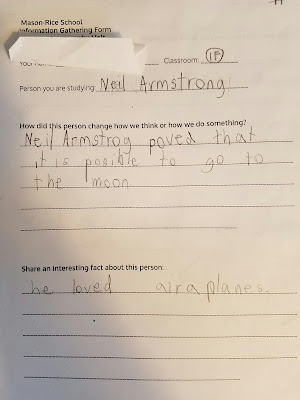 Mason-Rice School
Information Gathering Form
Classroom: 1F
Person you are studying: Neil Armstrong
How did this person change how we think or how we do something?
Neil Armstrog poved that
it is posible to go to
the moon
Share an interesting fact about this person:
he loved airaplanes.